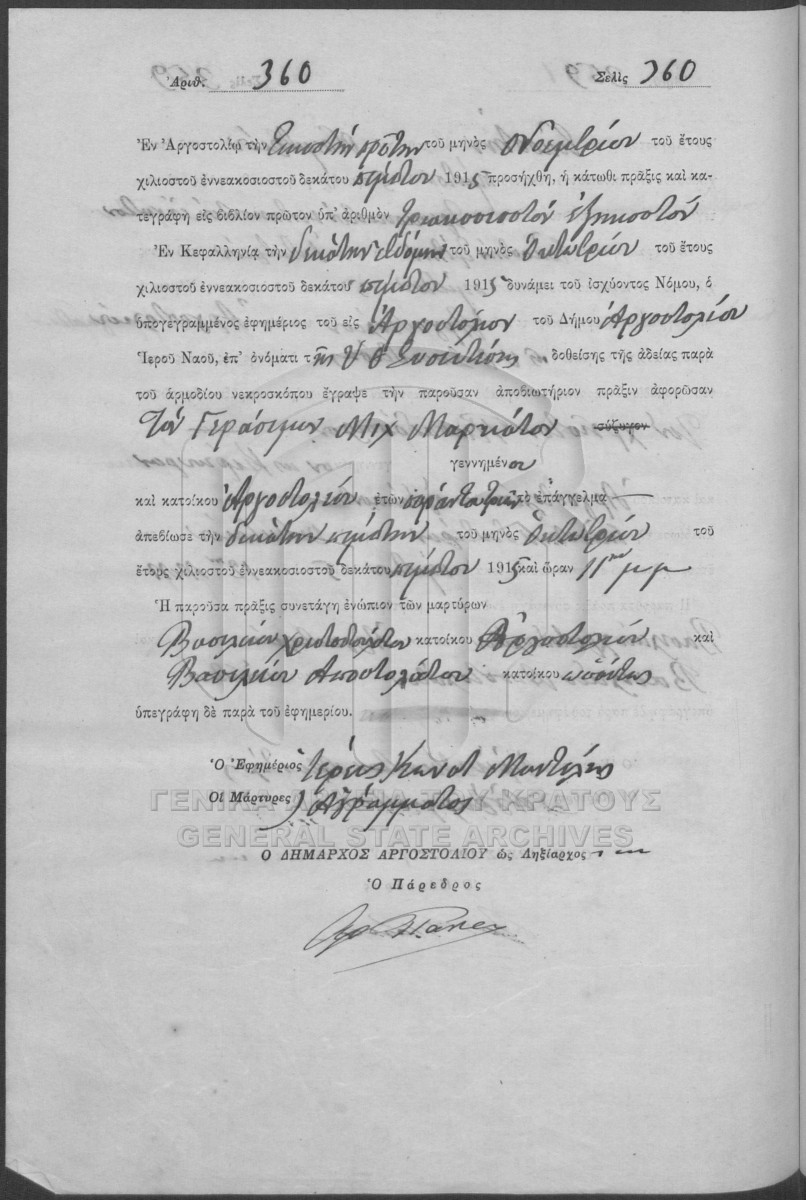 Ἀριθ. 360 Σελὶς 360
Ἐν Ἀργοστολίῳ τὴν Εἰκοστὴν πρώτην τοῦ μηνὸς Νοεμβρίου τοῦ ἔτους
χιλιοστοῦ ἐννεακοσιοστοῦ δεκάτου πέμπτου 1915 προσήχθη, ἡ κάτωθι πρᾶξις καὶ κα-
τεγράφη εἰς βιβλίον πρῶτον ὑπ' ἀριθμὸν τριακοσιοστὸν ἑξηκοστὸν
Ἐν Κεφαλληνίᾳ τὴν δεκάτην ἑβδόμην τοῦ μηνὸς Ὀκτωβρίου τοῦ ἔτους
χιλιοστοῦ ἐννεακοσιοστοῦ δεκάτου πέμπτου 1915 δυνάμει τοῦ ἰσχύοντος Νόμου, ὁ
ὑπογεγραμμένος ἐφημέριος τοῦ εἰς Ἀργοστόλιον τοῦ Δήμου Ἀργοστολίου
Ἱεροῦ Ναοῦ, ἐπ' ὀνόματι τῆς Υ Θ δοθείσης τῆς ἀδείας παρὰ
τοῦ ἁρμοδίου νεκροσκόπου ἔγραψε τὴν παροῦσαν ἀποβιωτήριον πρᾶξιν ἀφορῶσαν
Τὸν Γεράσιμον Μιχ Μαρκάτον σύζυγον
γεννημένον
καὶ κατοίκου Ἀργοστολίου ἐτῶν σαράντα τριῶν τὸ ἐπάγγελμα —
ἀπεβίωσε τὴν δεκάτην πέμπτην τοῦ μηνὸς Ὀκτωβρίου τοῦ
ἔτους χιλιοστοῦ ἐννεακοσιοστοῦ δεκάτου πέμπτου 1915 καὶ ὥραν 11ην μ μ
Ἡ παροῦσα πρᾶξις συνετάγη ἐνώπιον τῶν μαρτύρων
Βασιλείου Χριστοδουλάτου κατοίκου Ἀργοστολίου καὶ
Βασιλείου Ἀποστολάτου κατοίκου
ὑπεγράφη δὲ παρὰ τοῦ ἐφημερίου.
Ὁ Ἐφημέριος Ἱερεὺς
Οἱ Μάρτυρες) Ἀγράμματος
ΓΕΝΙΚΑ ΑΡΧΕΙΑ ΤΟΥ ΚΡΑΤΟΥΣ
GENERAL STATE ARCHIVES
Ο ΔΗΜΑΡΧΟΣ ΑΡΓΟΣΤΟΛΙΟΥ ὡς Ληξίαρχος
Ὁ Πάρεδρος